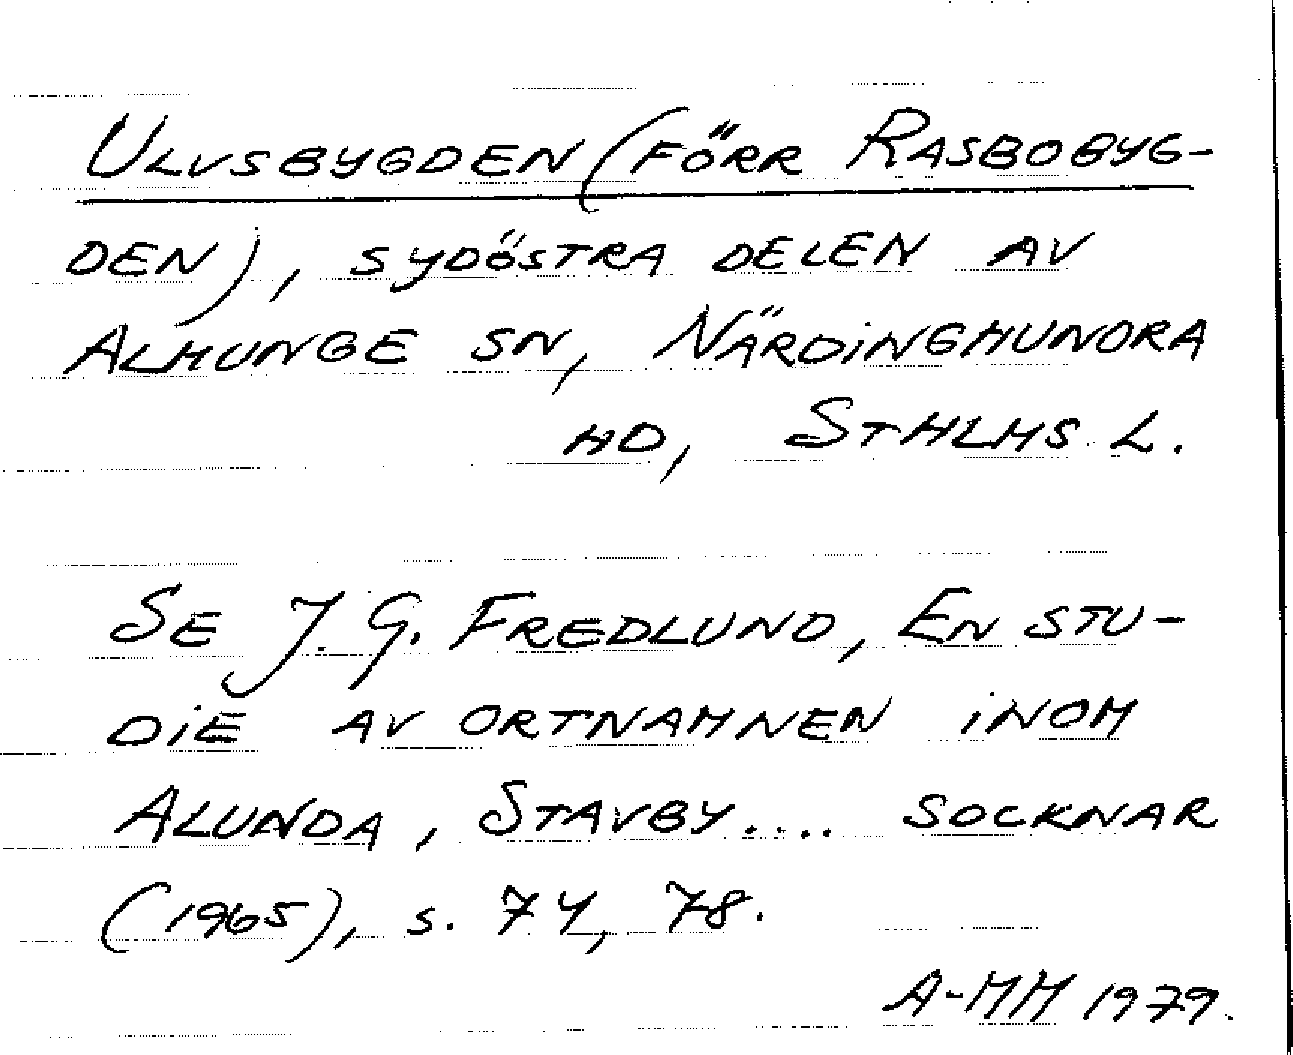 ULVSBYGDEN (FÖRR RASBOBYG-
DEN), SYDÖSTRA DELEN AV
ALMUNGE SN, NÄRDINGHUNDRA
HD, STHLMS L.
SE J.G. FREDLUND, EN STU-
DIE AV ORTNAMNEN INOM
ALUNDA, STAVBY.... SOCKNAR
(1965), S. 74, 78.
A-MM 1979.